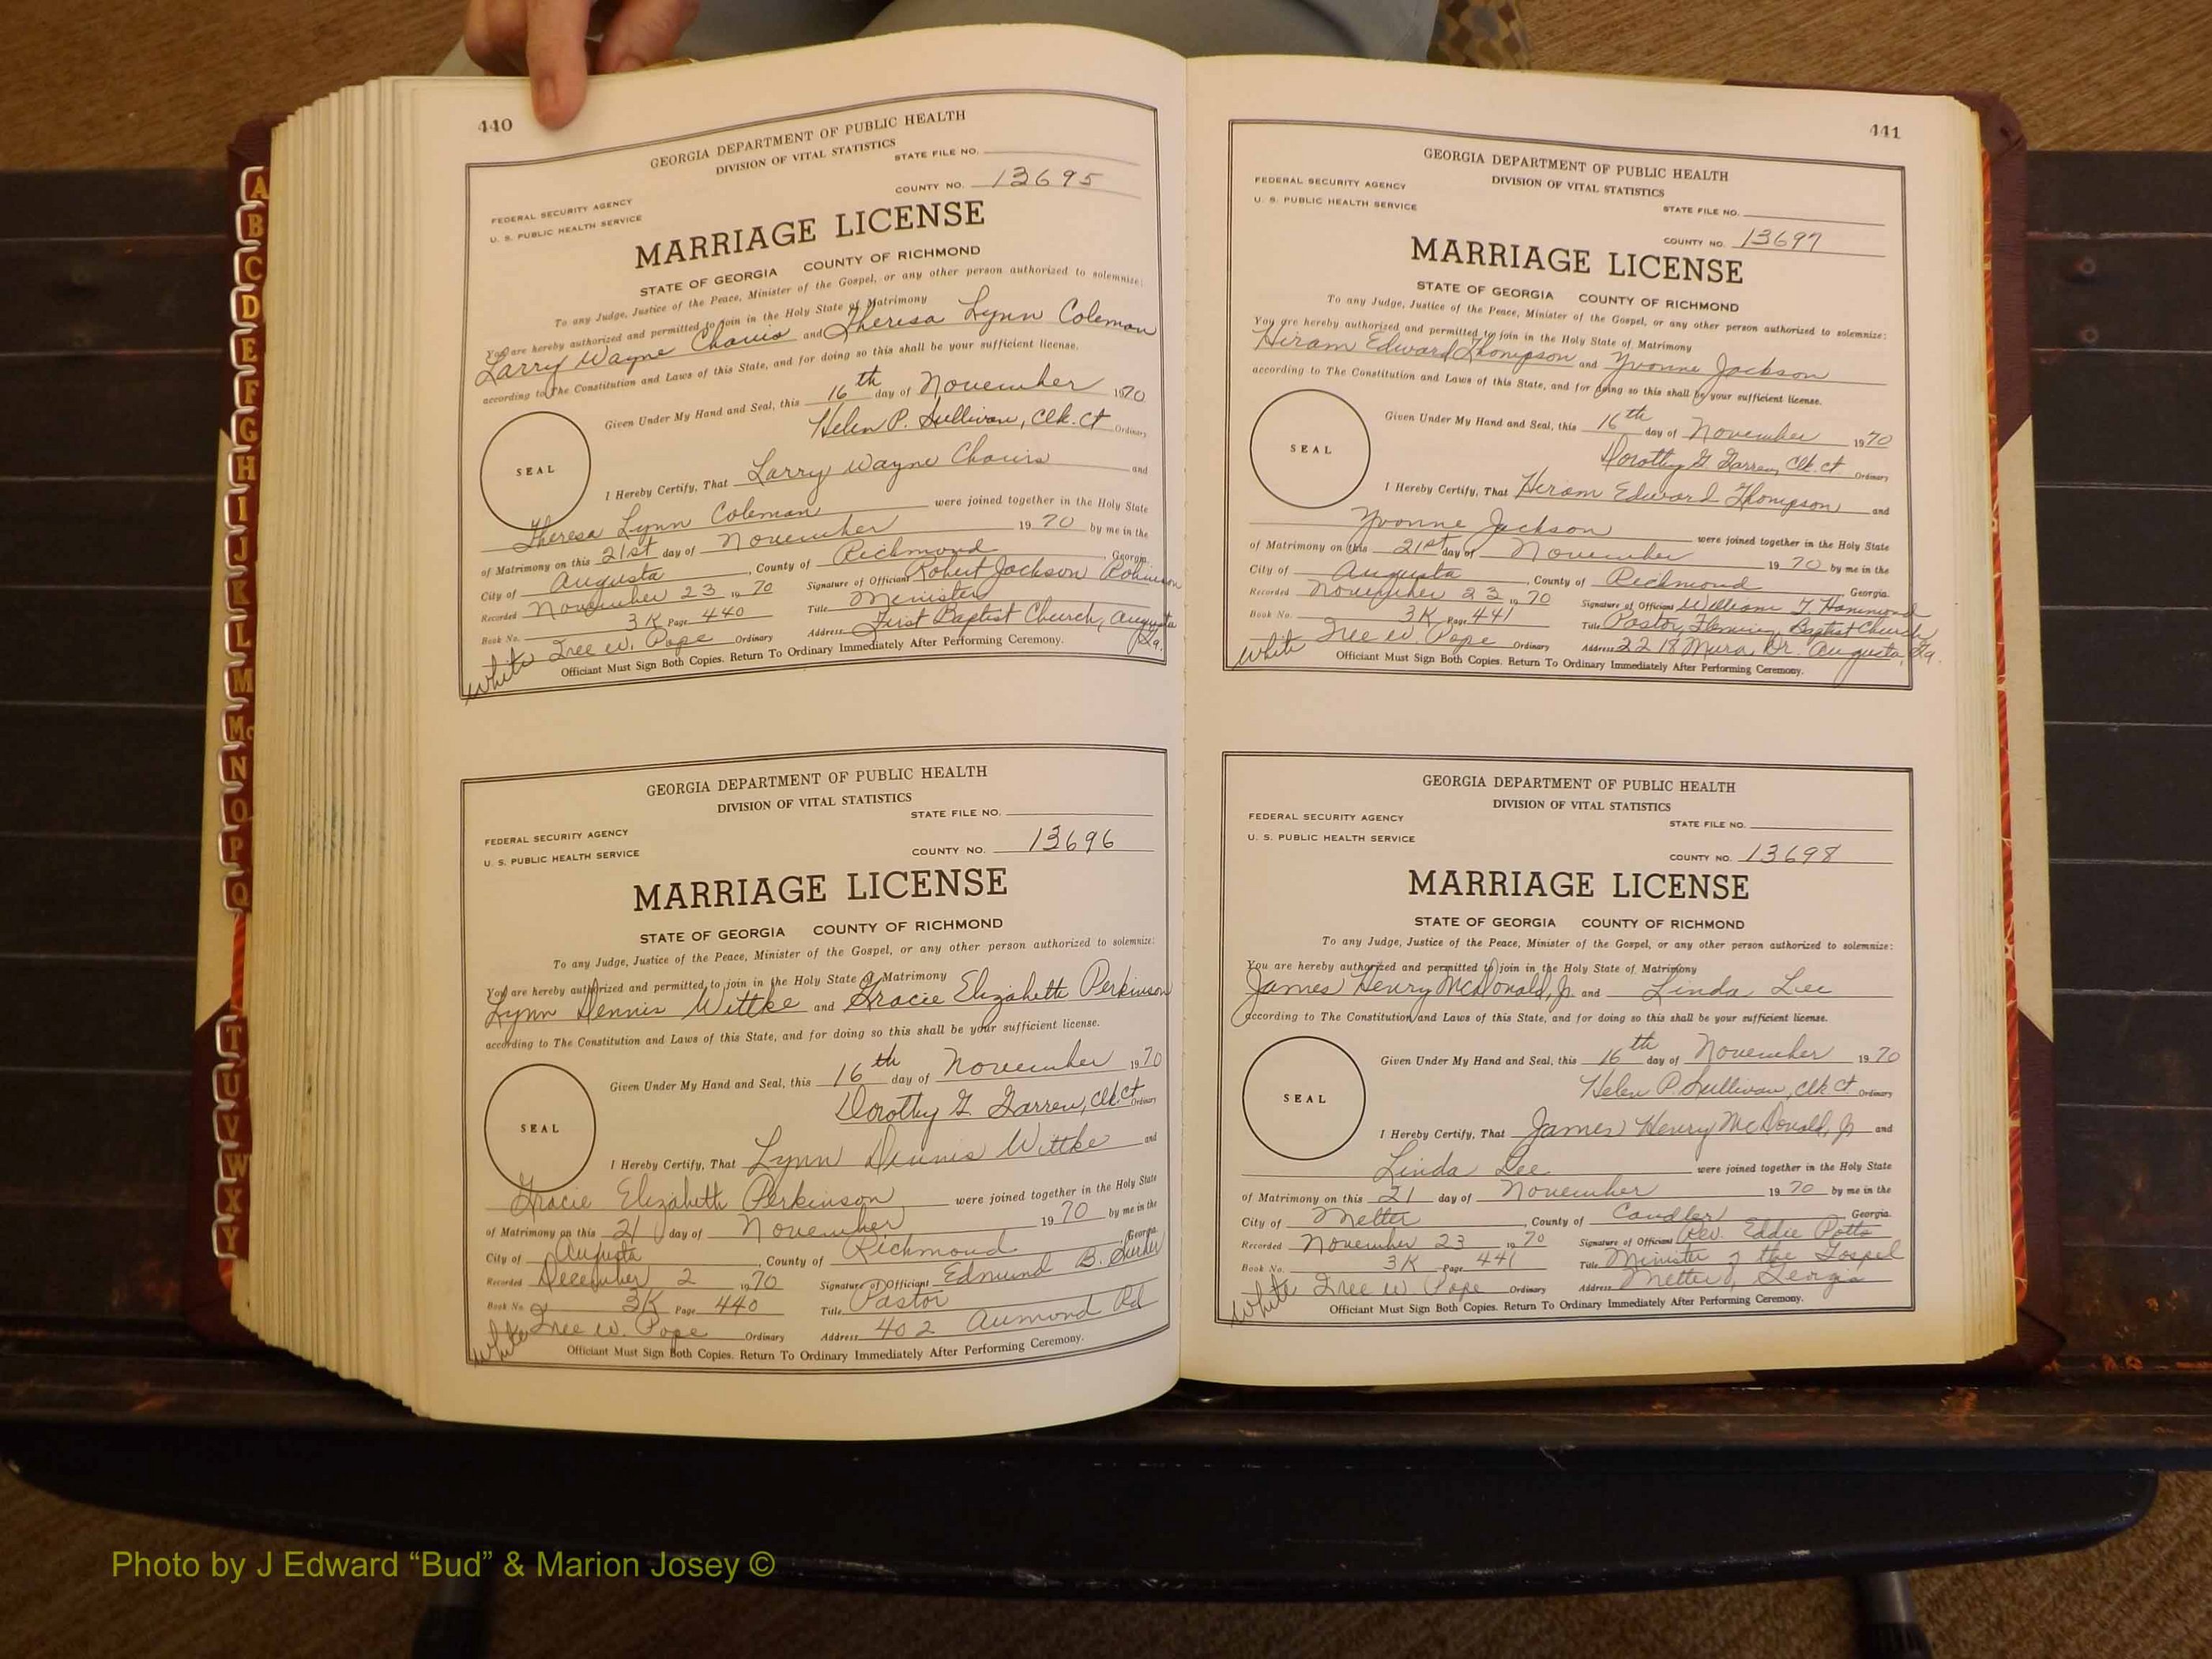 440
GEORGIA DEPARTMENT OF PUBLIC HEALTH
DIVISION OF VITAL STATISTICS
STATE FILE NO.
COUNTY NO. 13695
FEDERAL SECURITY AGENCY
U. S. PUBLIC HEALTH SERVICE
MARRIAGE LICENSE
STATE OF GEORGIA COUNTY OF RICHMOND
To any Judge, Justice of the Peace, Minister of the Gospel, or any other person authorized to solemnize:
You are hereby authorized and permitted to join in the Holy State of Matrimony
Larry Wayne and Theresa Lynn Coleman
according to The Constitution and Laws of this State, and for doing so this shall be your sufficient license.
Given Under My Hand and Seal, this 16th day of November 1970
Helen P. Sullivan, Clk. Ct Ordinary
SEAL
I Hereby Certify, That Larry Wayne and
Theresa Lynn Coleman were joined together in the Holy State
of Matrimony on this 21st day of November 19 70 by me in the
City of Augusta, County of Richmond, Georgia.
Recorded November 23 19 70 Signature of Officiant Robert Jackson Robinson
Book No. 3K Page 440 Title Minister
Tree W. Pope Ordinary Address First Baptist Church, Augusta Ga.
White Officiant Must Sign Both Copies. Return To Ordinary Immediately After Performing Ceremony.
GEORGIA DEPARTMENT OF PUBLIC HEALTH
DIVISION OF VITAL STATISTICS
STATE FILE NO.
FEDERAL SECURITY AGENCY
U. S. PUBLIC HEALTH SERVICE
COUNTY NO. 13696
MARRIAGE LICENSE
STATE OF GEORGIA COUNTY OF RICHMOND
To any Judge, Justice of the Peace, Minister of the Gospel, or any other person authorized to solemnize:
You are hereby authorized and permitted to join in the Holy State of Matrimony
Lynn Dennis Wittke and Gracie Elizabeth Perkinson
according to The Constitution and Laws of this State, and for doing so this shall be your sufficient license.
Given Under My Hand and Seal, this 16th day of November 1970
Dorothy G. Garren, Clk. Ct Ordinary
SEAL
I Hereby Certify, That Lynn Dennis Wittke and
Gracie Elizabeth Perkinson were joined together in the Holy State
of Matrimony on this 21 day of November 19 70 by me in the
City of Augusta, County of Richmond, Georgia.
Recorded December 2 1970 Signature of Officiant Edmund B.
Book No. 3K Page 440 Title Pastor
Tree W. Pope Ordinary Address 402 Aumond Rd
White Officiant Must Sign Both Copies. Return To Ordinary Immediately After Performing Ceremony.
441
GEORGIA DEPARTMENT OF PUBLIC HEALTH
DIVISION OF VITAL STATISTICS
FEDERAL SECURITY AGENCY
U. S. PUBLIC HEALTH SERVICE
STATE FILE NO.
COUNTY NO. 13697
MARRIAGE LICENSE
STATE OF GEORGIA COUNTY OF RICHMOND
To any Judge, Justice of the Peace, Minister of the Gospel, or any other person authorized to solemnize:
You are hereby authorized and permitted to join in the Holy State of Matrimony
Hiram Edward Thompson and Yvonne Jackson
according to The Constitution and Laws of this State, and for doing so this shall be your sufficient license.
Given Under My Hand and Seal, this 16th day of November 1970
Dorothy G. Garren, Clk. Ct Ordinary
SEAL
I Hereby Certify, That Hiram Edward Thompson and
Yvonne Jackson were joined together in the Holy State
of Matrimony on this 21st day of November 19 70 by me in the
City of Augusta, County of Richmond, Georgia.
Recorded November 23 1970 Signature of Officiant William T Hammond
Book No. 3K Page 441 Title Pastor, Fleming Baptist Church
Tree W. Pope Ordinary Address 2218 Mura Dr. Augusta, Ga.
White Officiant Must Sign Both Copies. Return To Ordinary Immediately After Performing Ceremony.
GEORGIA DEPARTMENT OF PUBLIC HEALTH
DIVISION OF VITAL STATISTICS
FEDERAL SECURITY AGENCY
U. S. PUBLIC HEALTH SERVICE
STATE FILE NO.
COUNTY NO. 13698
MARRIAGE LICENSE
STATE OF GEORGIA COUNTY OF RICHMOND
To any Judge, Justice of the Peace, Minister of the Gospel, or any other person authorized to solemnize:
You are hereby authorized and permitted to join in the Holy State of Matrimony
James Henry McDonald, Jr. and Linda Lee
according to The Constitution and Laws of this State, and for doing so this shall be your sufficient license.
Given Under My Hand and Seal, this 16th day of November 1970
Helen P. Sullivan, Clk Ct Ordinary
SEAL
I Hereby Certify, That James Henry McDonald, Jr and
Linda Lee were joined together in the Holy State
of Matrimony on this 21 day of November 19 70 by me in the
City of Metter, County of Candler Georgia.
Recorded November 23 19 70 Signature of Officiant Rev. Eddie Potts
Book No. 3K Page 441 Title Minister of the Gospel
Tree W Pope Ordinary Address Metter, Georgia
White Officiant Must Sign Both Copies. Return To Ordinary Immediately After Performing Ceremony.
A
B
C
D
E
F
G
H
I
J
K
L
M
Mc
N
O
P
Q
T
U
V
W
X
Y
Photo by J Edward “Bud” & Marion Josey ©